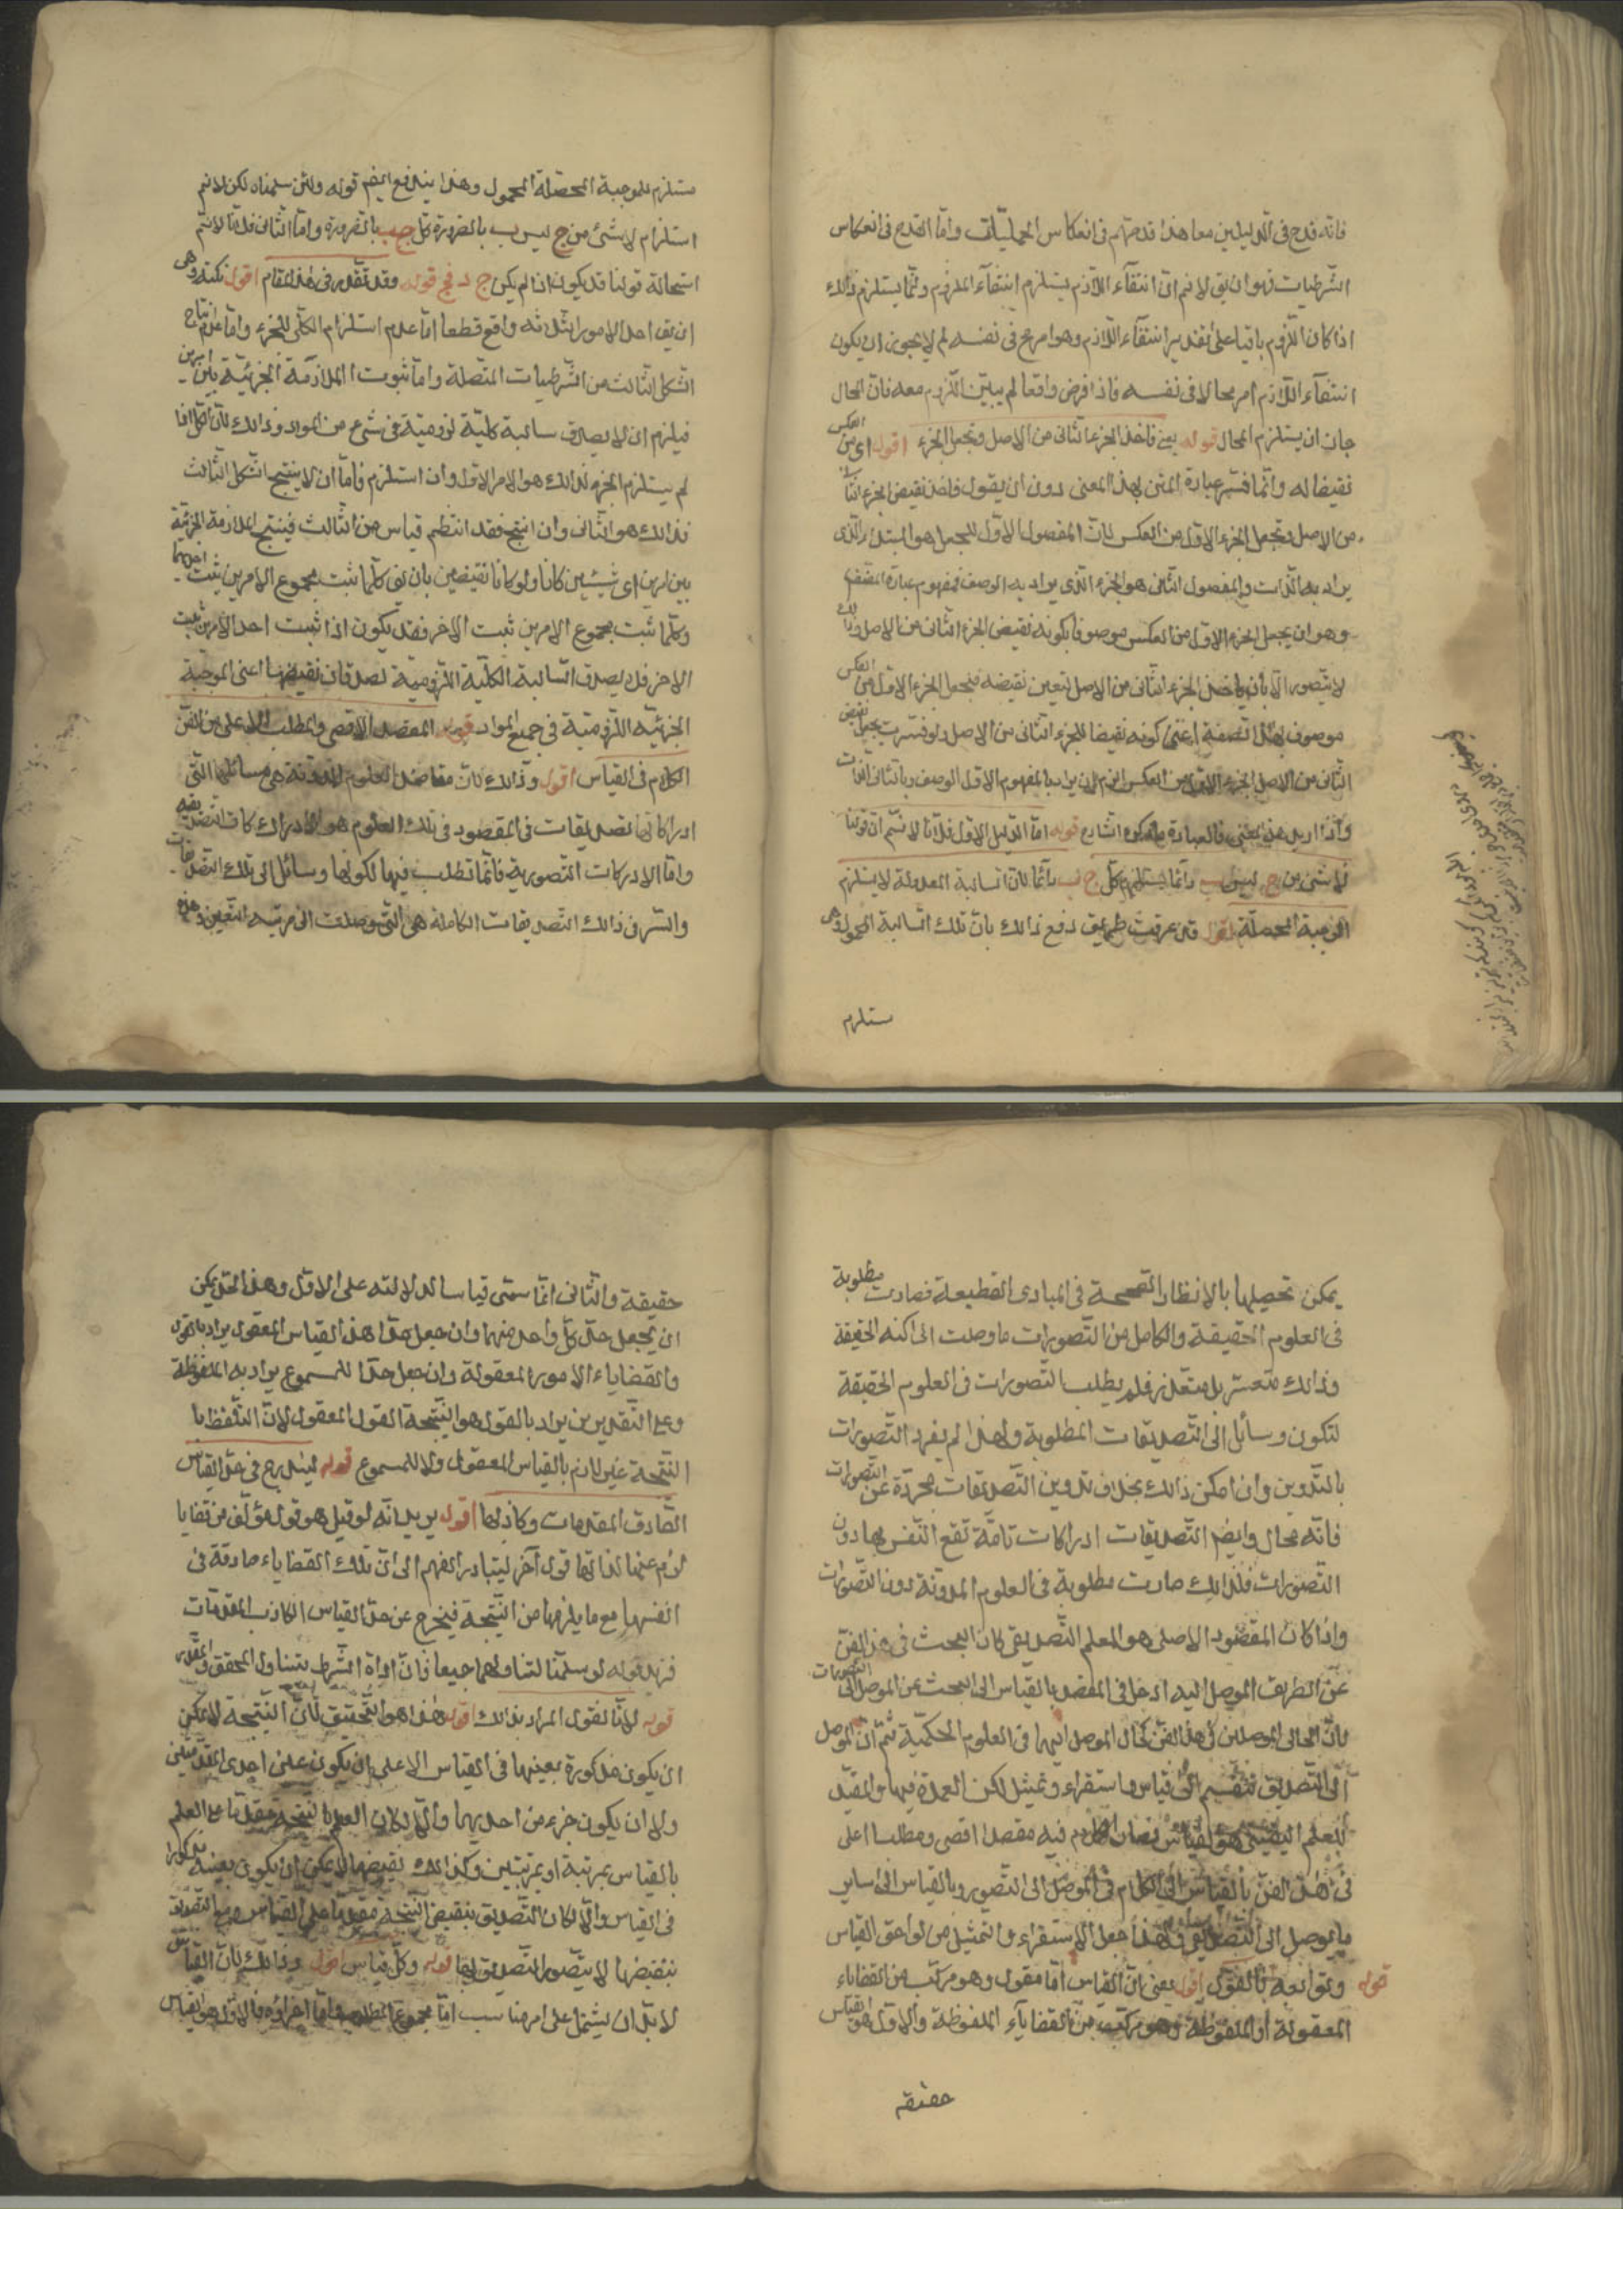 فانه قدح فى الدليلين معا هذا قدحهم فى انعكاس الحمليات واما القدح فى انعكاس
الشرطيات فهو ان يق لانم ان انتفاء اللازم يستلزم انتفاء الملزوم وانما يستلزم ذالك
اذا كان اللزوم باقيا على تقدير انتفاء اللازم وهو امر مح فى نفسه لم لا يجوز ان يكون
انتفاء اللازم امر محالا فى نفسه فاذا فرض واقعا لم يبق اللزوم معه فان المحال
جاز ان يستلزم المحال قوله يعنى ناخذ الجزء الثانى من الاصل ونجعل الجزء اقول اى من العكس
نقيضا له وانما فسر عبارة المتن بهذا المعنى دون ان يقول فاخذ نقيض الجزء الثا
من الاصل ونجعل الجزء الاول من العكس لان المفعول الاول للجعل هو المبتداء الذى
يراد به الذات والمفعول الثانى هو الجزء الذى يراد به الوصف فمفهوم عبارة المصنف
وهو ان يجعل الجزء الاول من العكس موصوفا بكونه نقيض الجزء الثانى من الاصل وذالك
لا يتصور الا بان ياخذ الجزء الثانى من الاصل ليتعين نقيضه فنجعل الجزء الاول من العكس
موصوف بهذا الصفة اعنى كونه نقيضا للجزء الثانى من الاصل ولو فسرت بجعل نقيض
الثانى من الاصل الجزء الاول من العكس لزم ان يراد بالمفهوم الاول الوصف وبالثانى الذات
واذا اريد هذا المعنى فالعبارة ما ذكره الشارح قوله اما الدليل الاول فلانا لا نسلم ان قولنا
لا شئ من ج ليس ب دائما يستلزم كل ج ب دائما لان السالبة المعدولة لا يستلزم
الموجبة المحصلة اقول قد عرفت طريق دفع ذالك بان تلك السالبة المحمول وهى
ستلزم
ستلزم للموجبة المحصلة المحمول وهذا يندفع ايضم قوله ولئن سلمناه لكن لانم
استلزام لا شئ من ج ليس ب بالضرورة كل ج ب بالضرورة واما الثانى فلانا لانم
استحالة قولنا قد يكون اذا لم يكن ج د فج قوله وقد تقدم فى هذا المقام اقول نكتة وهى
ان يق احد الامور الثلثه واقع قطعا اما عدم استلزام الكلى للجزء واما عدم انتاج
الشكل الثالث من الشرطيات المتصلة واما ثبوت الملازمة الجزئية بين امرين
فيلزم ان لا يصدق سالبة كلية لزومية فى شئ من المواد وذالك لان الكل اذا
لم يستلزم الجزء فذالك هو الامر الاول وان استلزم فاما ان لا ينتج الشكل الثالث
فذالك هو الثانى وان انتج فقد انتظم قياس من الثالث فينتج الملازمة الجزئية
بين امرين اى شيئين كانا ولو كانا نقيضين بان يق كلما ثبت مجموع الامرين ثبت احدهما
وكلما ثبت مجموع الامرين ثبت الاخر فقد يكون اذا ثبت احد الامرين ثبت
الاخر فلا يصدق السالبة الكلية اللزومية لصدقان نقيضها اعنى الموجبة
الجزئيه اللزومية فى جميع المواد قوله المقصد الاقصى والمطلب الاعلى من الفن
الكلام فى القياس اقول وذالك لان مقاصد العلوم المدونة هى مسائلها التى
ادراكاتها تصديقات فى المقصود فى تلك العلوم هو الادراك كان التصديقية
واما الادركات التصورية فانما تطلب فيها لكونها وسائل الى تلك التصديقات
والسر فى ذالك التصديقات الكاملة هى التى وصلت الى مرتبه التعين وهذه
يمكن تحصيلها بالانظار الصحيحة فى المبادى القطيعة فصارت مطلوبة
فى العلوم الحقيقة والكامل من التصورات ما وصلت الى اكنه الحقيقة
وذالك متعسر بل متعذر فلم يطلب التصورات فى العلوم الحقيقة
لتكون وسائل الى التصديقات المطلوبة ولهذا لم يفرد التصورات
بالتدوين وان امكن ذالك بخلاف تدوين التصديقات مجردة عن التصورات
فانه محال وايضم التصديقات ادراكات تامة تقع النفس بها دون
التصورات فلذالك صارت مطلوبة فى العلوم المدونة دون التصورات
واذا كان المقصود الاصلى هو المعلم التصديقى كان البحث فى هذا الفن
عن الطريق الموصل اليه ادخل فى المقصد بالقياس الى البحث عن الموصل الى التصورات
بان الحالى الموصلين فى هذا الفن كحال الموصل اليهما فى العلوم الحكمية ثم ان الموصل
الى التصديق تنقسم الى قياس واستقراء وتمثيل لكن العمدة فيها والمفيد
للعلم اليقينى هو القياس فصار الكلام فيه مقصدا اقصى ومطلبا اعلى
فى هذا الفن بالقياس الى الكلام فى الموصل الى التصور وبالقياس الى ساير
ما يوصل الى التصديق ولهذا جعل الاستقراء والتمثيل من لواحق القياس
وتوابعه قوله فالقول اقول يعنى ان القياس اما مقول وهو مركب من القضاياء
المعقولة او الملفوظة وهو مركب من القضاياء الملفوظة والاول هو القياس
حقيقه
حقيقة والثانى انما سمى قياسا لدلالته على الاول وهذا الحد يمكن
ان يجعل حد كل واحد منهما وان جعل حدا هذا القياس المعقول يراد بالقول
والقضاياء الامور المعقولة وان جعل حدا للمسموع يراد به الملفوظة
وعلى التقديرين يراد بالقول هو النتيجة القول المعقول لان التلفظ با
النتيجة غير لازم بالقياس المعقول ولا للمسموع قوله ليندرج فى حد القياس
الصادق المقدمات وكاذبها اقول يريد انه لو قيل هو قول مؤلف من قضايا
لزم عنها لذاتها قول آخر ليتبادر الفهم الى ان تلك القضاياء صادقة فى
انفسها مع ما يلزمها من النتيجة فيخرج عن حد القياس الكاذب المقدمات
فزيد قوله لو سلمنا لتناولهما جميعا فان اداة الشرط يتناول المحقق والمقدر
قوله لانا القول المراد بذالك اقول هذا هو التحقيق لان النتيجة لا يمكن
ان يكون مذكورة بعينها فى القياس الا على ان يكون عين احدى المقدمتين
ولا ان يكون جزء من احديهما والا لكان العلم بالنتيجة مقدما على العلم
بالقياس بمرتبة او بمرتبتين وكذالك نقيضها لا يمكن ان يكون بعينه مذكورا
فى القياس والا لكان التصديق بنقيض النتيجة مقدما على القياس ومع التصديق
بنقيضها لا يتصور التصديق بها قوله وكل قياس اقول وذالك لان القياس
لا بد ان يشتمل على امر مناسب اما مجموع المطلوب واما اجزاؤه فالاول هو القياس